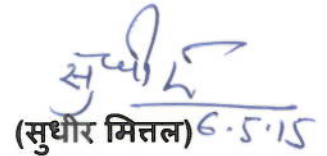 सुधीर
(सुधीर मित्तल) 6.5.15